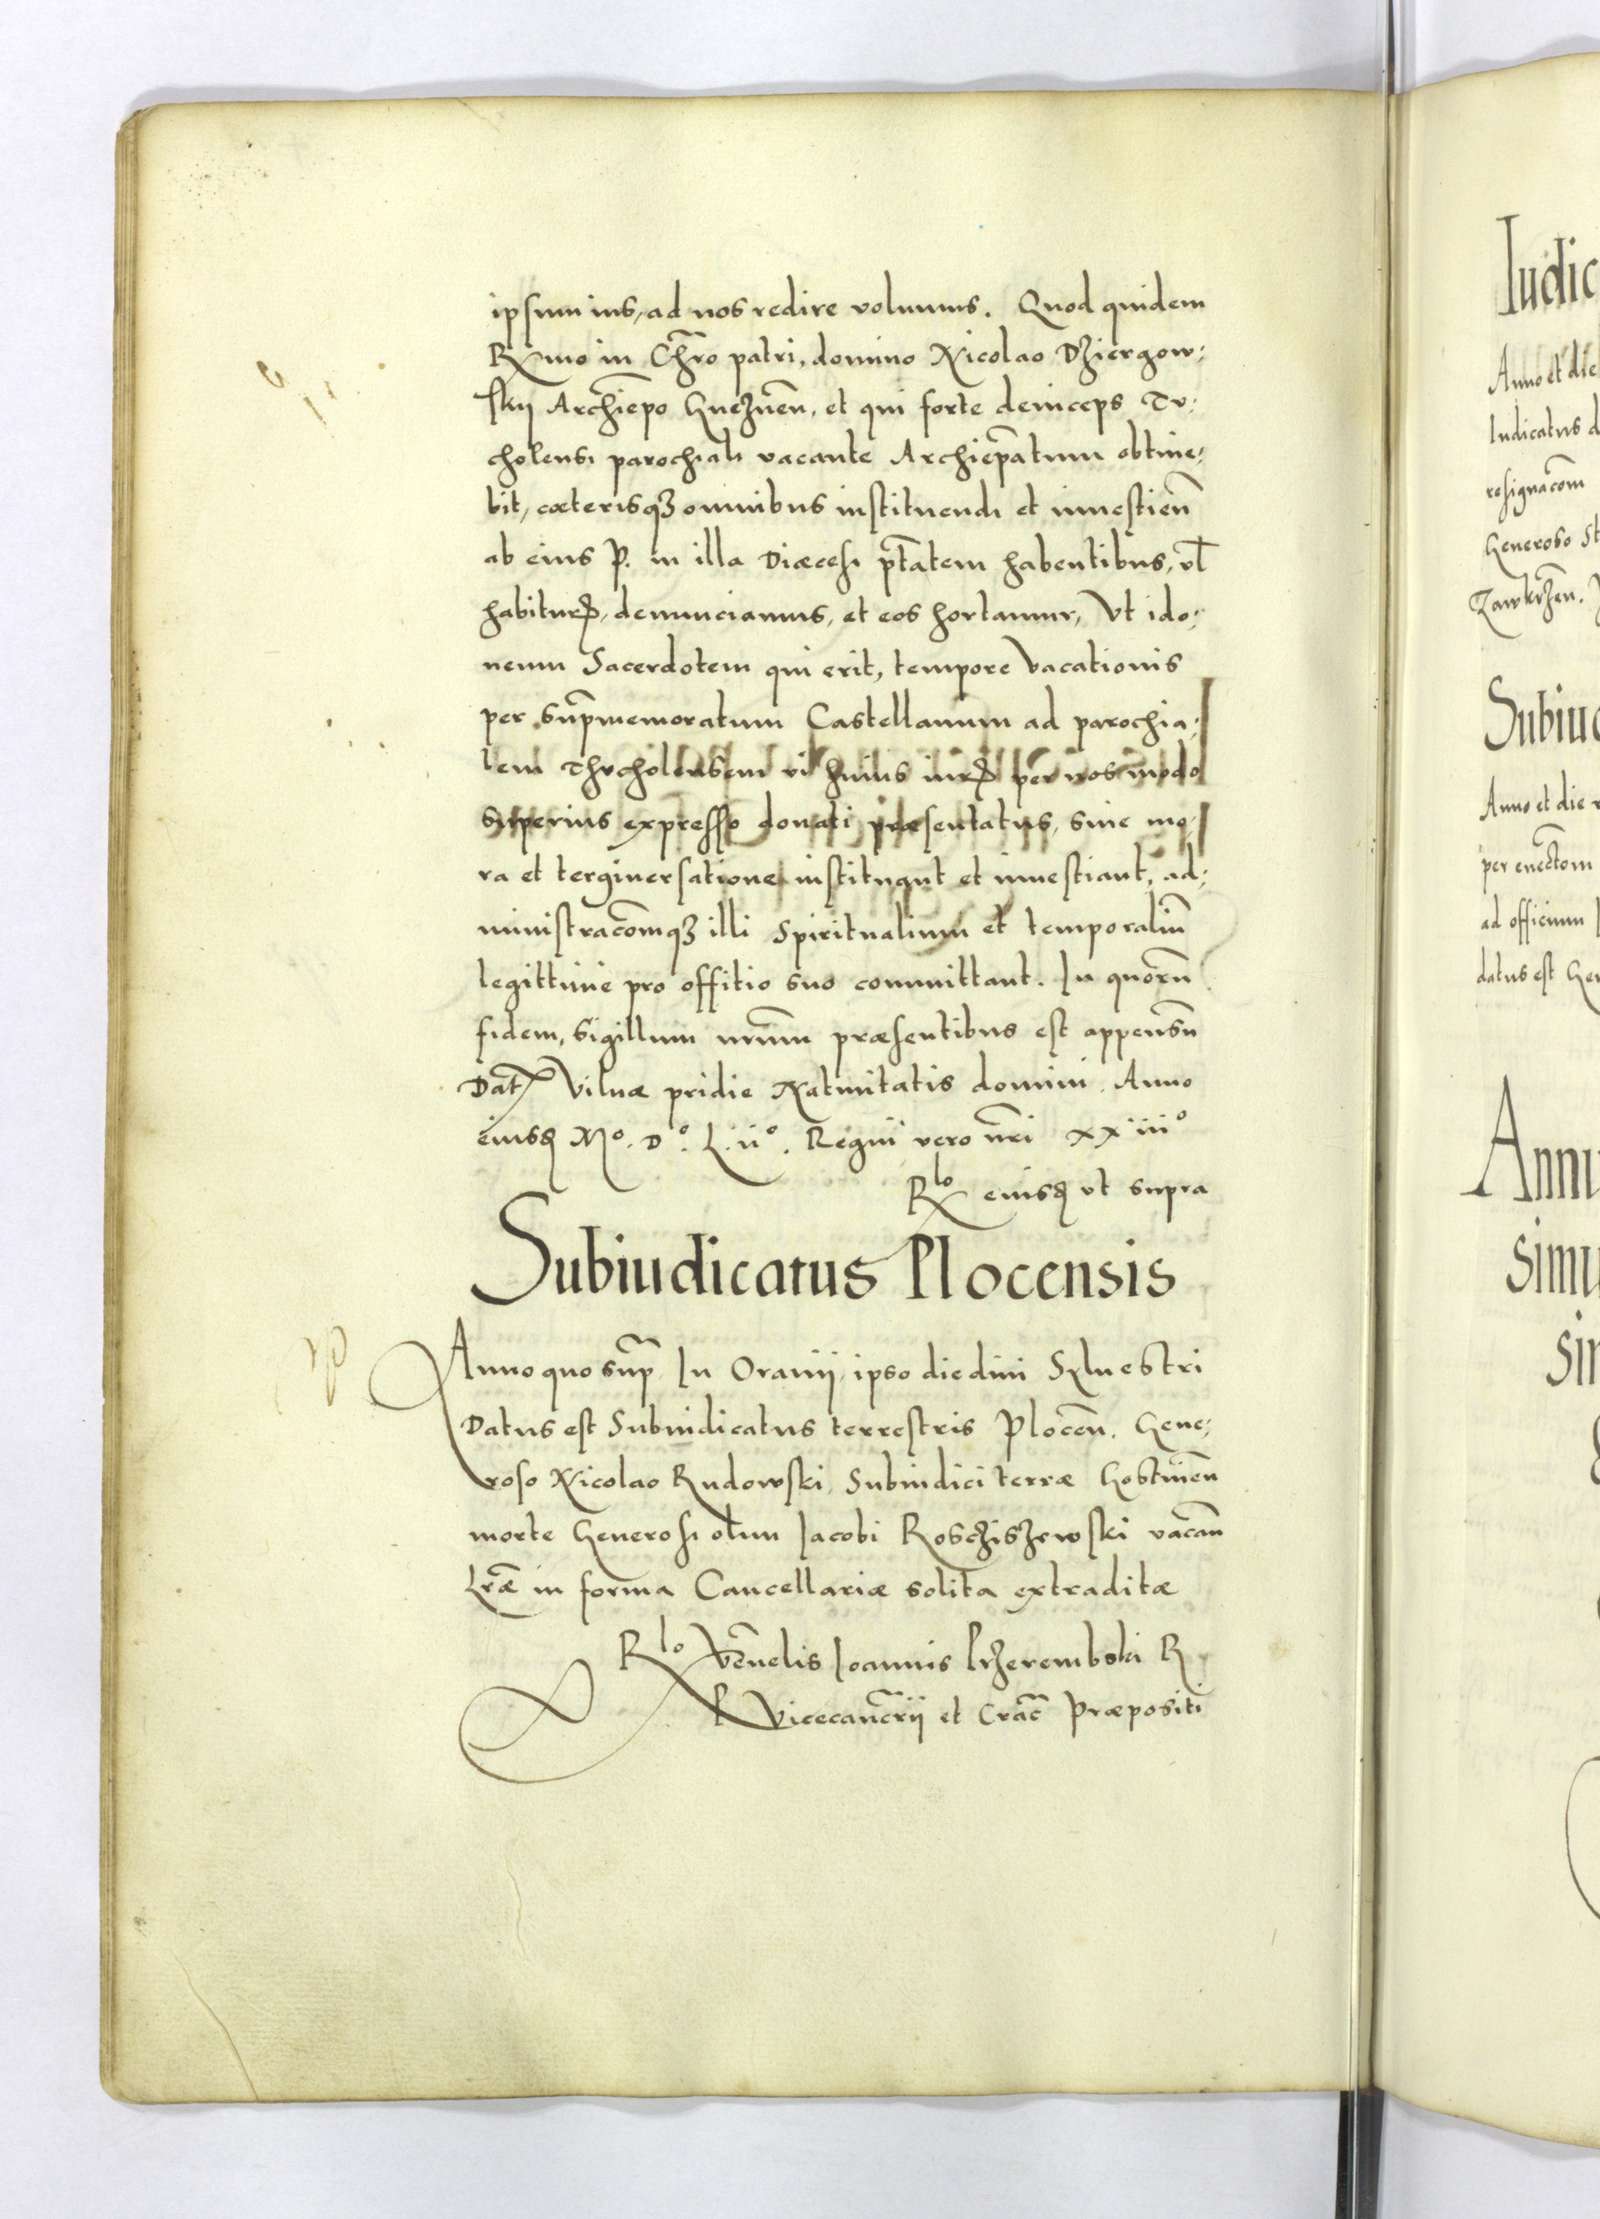 ipsum ius, ad nos redire volumus. Quod quidem
Rx̃mo in Chr̃o patri, domino Nicolao Dziergow:
skij Archiep̃o Gneznen̄, et qui forte deinceps Tu:
cholensi parochiali vacante Archiep̃atum obtine:
bit, cæterisqꝫ omnibus instituendi et inuestien̄
ab eius P. in illa Diæcesi pt̃atem habentibus, vl̃
habiturꝭ, denunciamus, et eos hortamur, Vt ido:
neum Sacerdotem qui erit, tempore vacationis
per sup̃memoratum Castellanum ad parochia:
lem Thucholensem vi huius iurꝭ per nos modo
superius expresso donati præsentatus, sine mo:
ra et tergiuersatione instituant et inuestiant, ad:
ministracom̃qꝫ illi Spiritualium et temporaliū
legittime pro offitio suo committant. In quorū
fidem, sigillum nr̃um præsentibus est appensū
Dat̃ Vilnæ pridie Natiuitatis domini. Anno
eiusd̃ Mº. Dº. L. iiº. Regni vero nr̃i xxiiiº
Rlo eiusd̃ vt supra
Subiudicatus Plocensis
Anno quo sup̃ In Oranij, ipso die diui Syluestri
Datus est Subiudicatus terrestris Plocen̄. Gene:
roso Nicolao Rudowski, Subiudici terræ Gostinen̄
morte Generosi olim Iacobi Rosciszewski vacan̄
Lr̃æ in forma Cancellariæ solita extraditæ
Rlo Ven̄elis Ioannis Przerembski R
P Vicecanc̃rii et Crac̃ Præpositi
Iudic
Anno et die
Iudicatus d
resignacom̃
Generoso St
Zawkrzen̄.
Subiud
Anno et die
per euectom̃
ad officium
datus est Gen
Annu
simu
sin